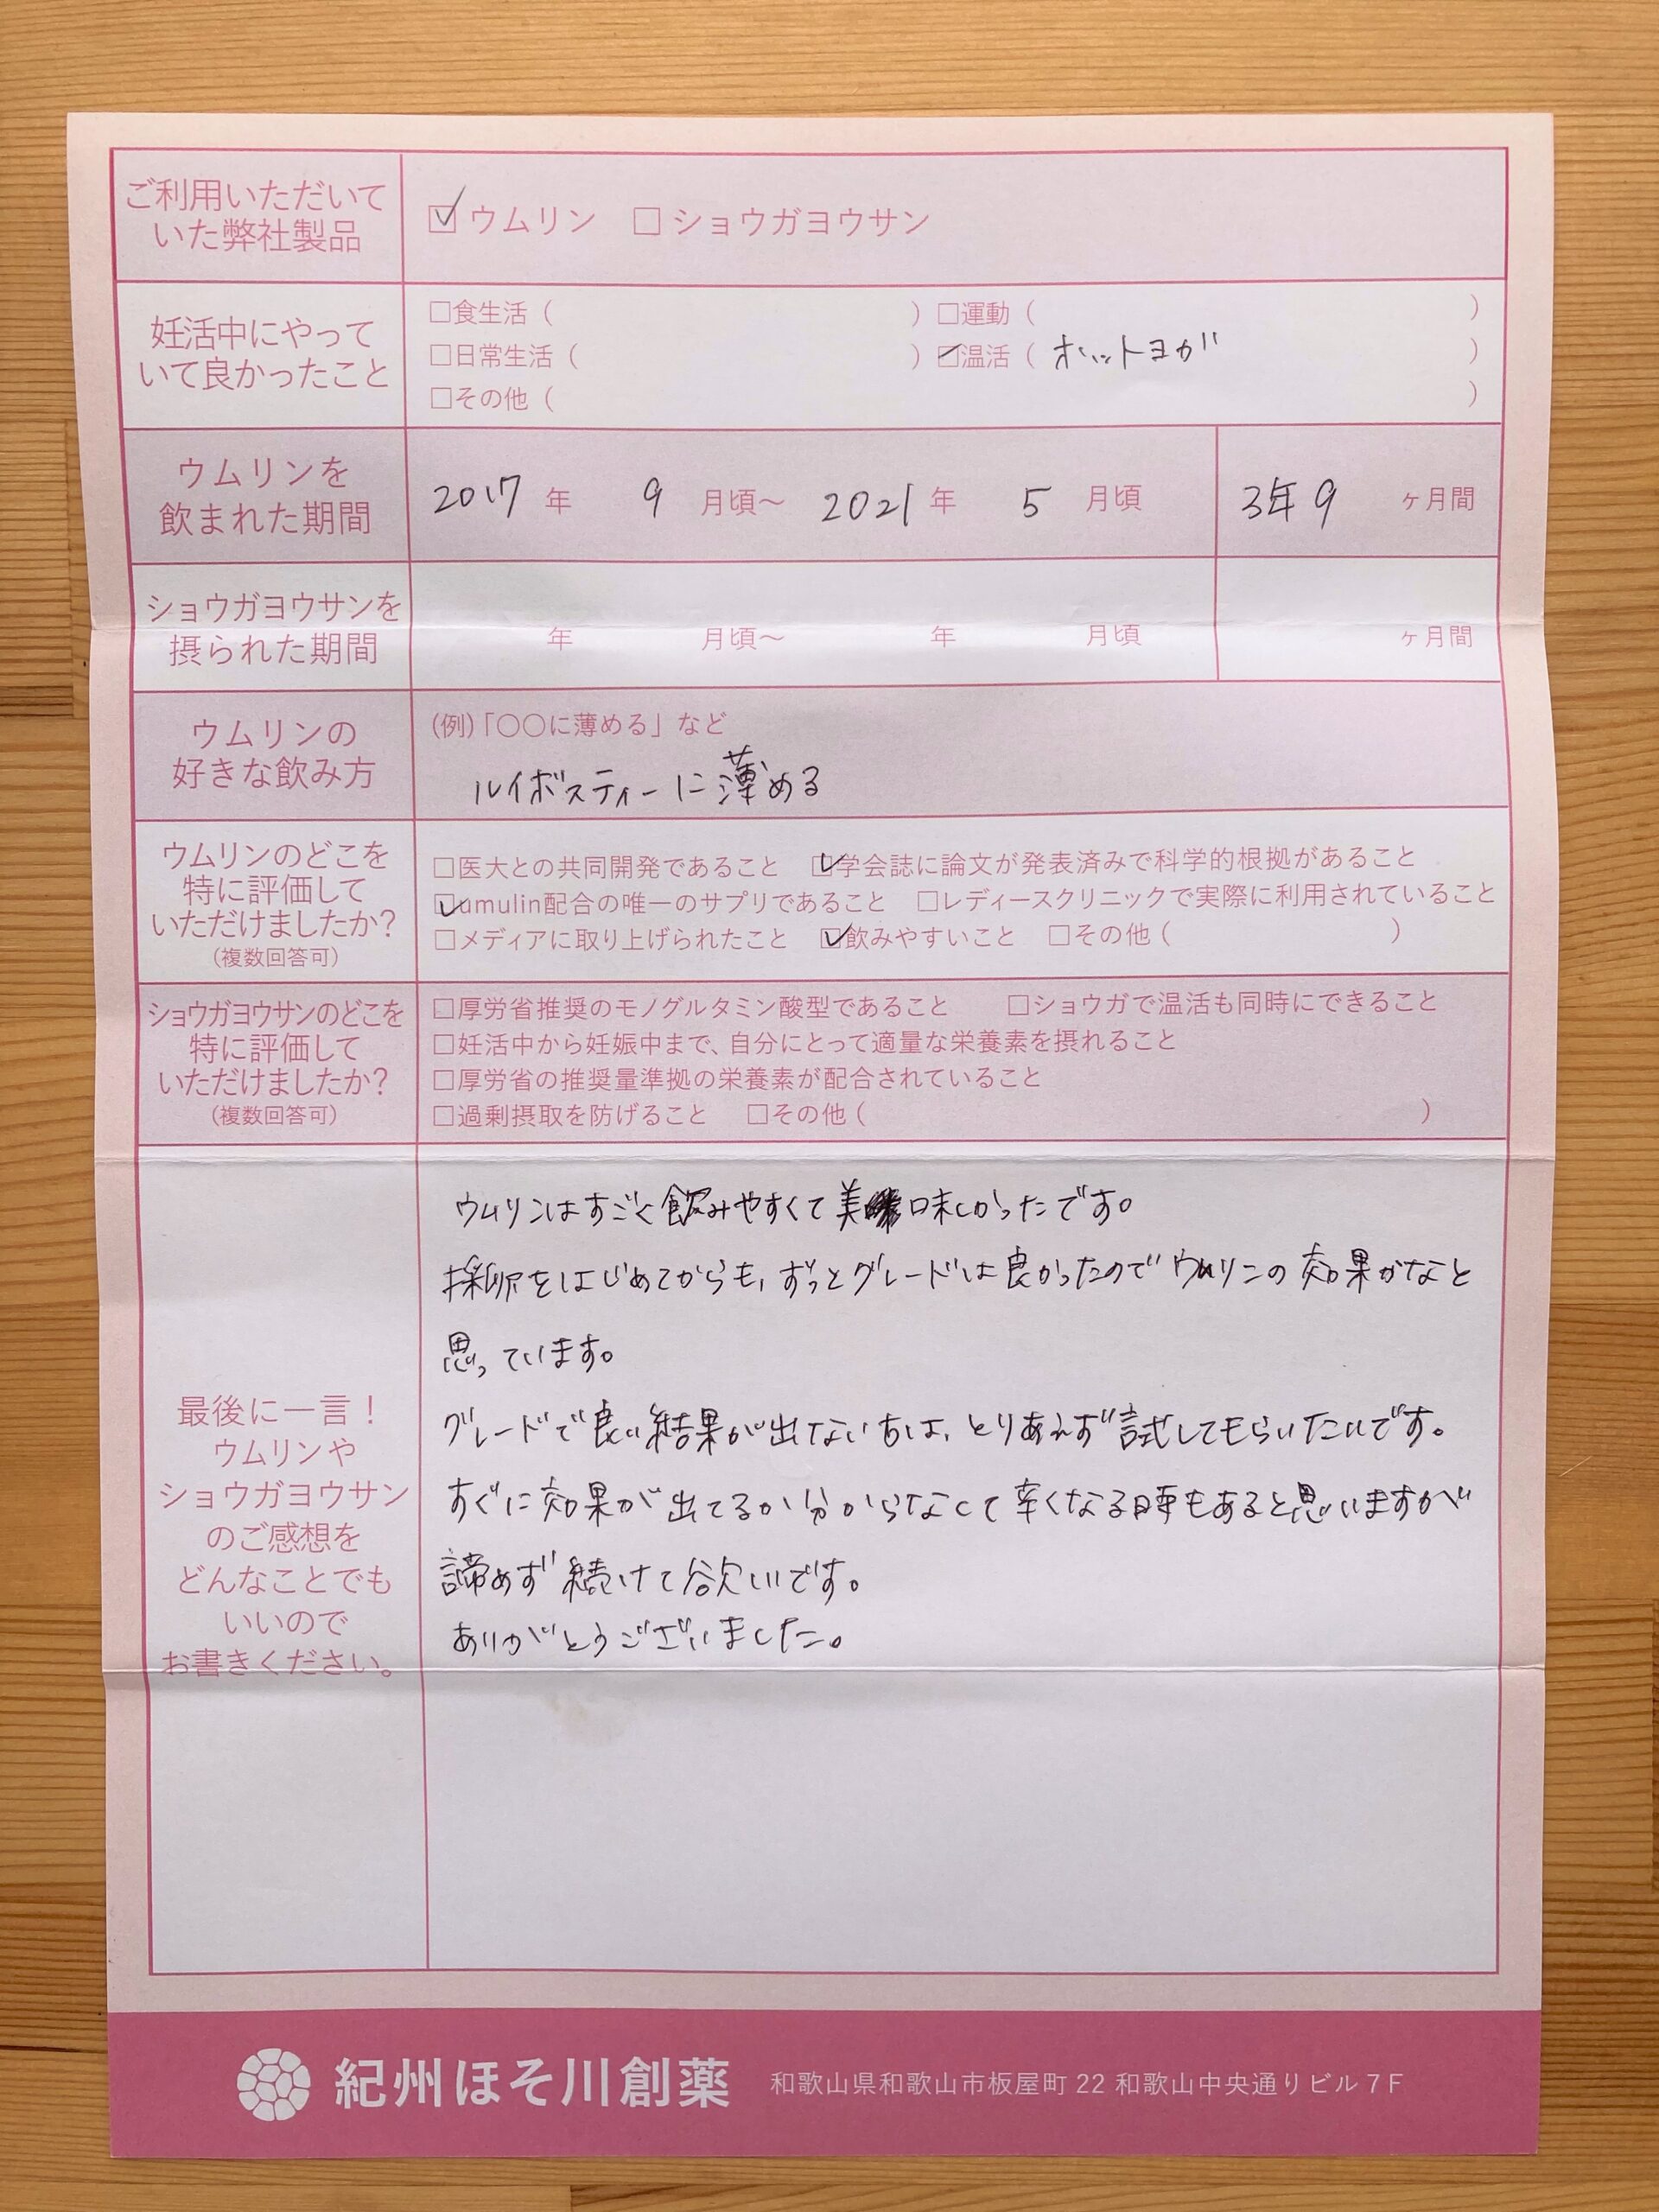 ご利用いただいて
いた弊社製品
☑ウムリン □ショウガヨウサン
妊活中にやって
いて良かったこと
□食生活（ ）□運動（ ）
□日常生活（ ）☑温活（ ホットヨガ ）
□その他（ ）
ウムリンを
飲まれた期間
2017 年 9 月頃〜 2021 年 5 月頃 3年9 ヶ月間
ショウガヨウサンを
摂られた期間
年 月頃〜 年 月頃 ヶ月間
ウムリンの
好きな飲み方
(例)「〇〇に薄める」など
ルイボスティーに薄める
ウムリンのどこを
特に評価して
いただけましたか?
(複数回答可)
□医大との共同開発であること ☑学会誌に論文が発表済みで科学的根拠があること
☑umulin配合の唯一のサプリであること □レディースクリニックで実際に利用されていること
□メディアに取り上げられたこと ☑飲みやすいこと □その他（ ）
ショウガヨウサンのどこを
特に評価して
いただけましたか?
(複数回答可)
□厚労省推奨のモノグルタミン酸型であること □ショウガで温活も同時にできること
□妊活中から妊娠中まで、自分にとって適量な栄養素を摂れること
□厚労省の推奨量準拠の栄養素が配合されていること
□過剰摂取を防げること □その他（ ）
最後に一言！
ウムリンや
ショウガヨウサン
のご感想を
どんなことでも
いいので
お書きください。
ウムリンはすごく飲みやすくて美味しかったです。
採卵をはじめてからも、ずっとグレードは良かったのでウムリンの効果かなと
思っています。
グレードで良い結果が出ない方は、とりあえず試してもらいたいです。
すぐに効果が出てるか分からなくて辛くなる時もあると思いますが
諦めず続けて欲しいです。
ありがとうございました。
紀州ほそ川創薬 和歌山県和歌山市板屋町 22 和歌山中央通りビル 7 F